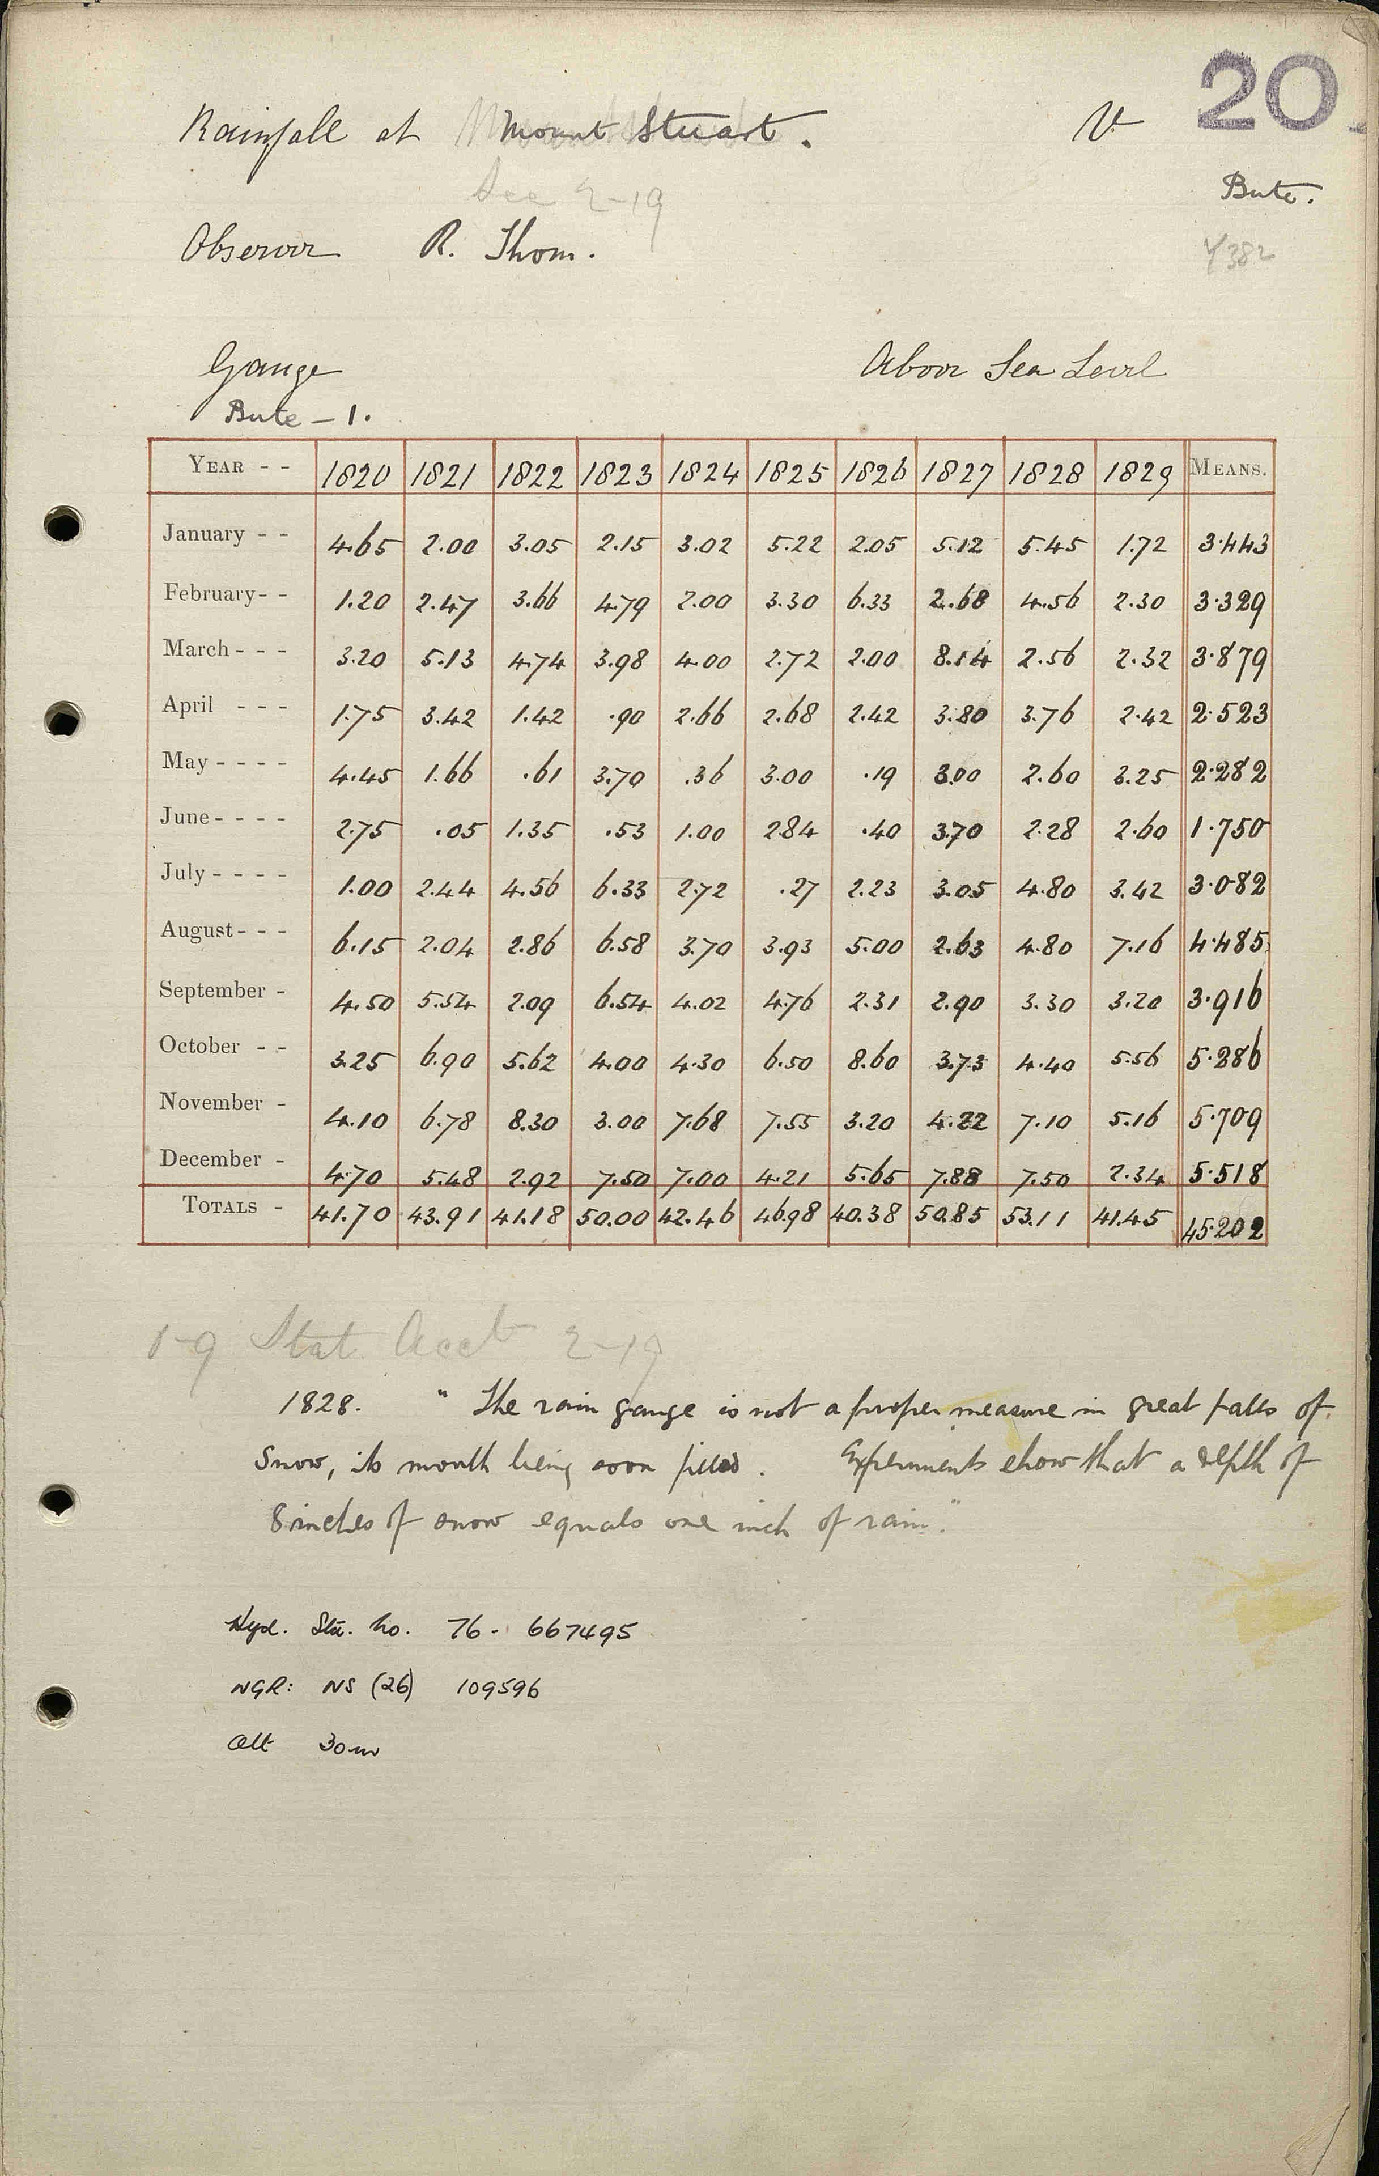 20
Rainfall at Mount Stuart. V
Bute.
See 2-19
Observer R. Thom.
Gauge Above Sea Level
Bute - 1.
YEAR - - 1820 1821 1822 1823 1824 1825 1826 1827 1828 1829 MEANS.
January - - 4.65 2.00 3.05 2.15 3.02 5.22 2.05 5.12 5.45 1.72 3.443
February - - 1.20 2.47 3.66 4.79 2.00 3.30 6.33 2.68 4.56 2.30 3.329
March - - - 3.20 5.13 4.74 3.98 4.00 2.72 2.00 8.14 2.56 2.32 3.879
April - - - 1.75 3.42 1.42 .90 2.66 2.68 2.42 3.80 3.76 2.42 2.523
May - - - - 4.45 1.66 .61 3.70 .36 3.00 .19 3.00 2.60 3.25 2.282
June - - - - 2.75 .05 1.35 .53 1.00 2.84 .40 3.70 2.28 2.60 1.750
July - - - - 1.00 2.44 4.56 6.33 2.72 .27 2.23 3.05 4.80 3.42 3.082
August - - - 6.15 2.04 2.86 6.58 3.70 3.93 5.00 2.63 4.80 7.16 4.485
September - 4.50 5.54 2.09 6.54 4.02 4.76 2.31 2.90 3.30 3.20 3.916
October - - 3.25 6.90 5.62 4.00 4.30 6.50 8.60 3.73 4.40 5.56 5.286
November - 4.10 6.78 8.30 3.00 7.68 7.55 3.20 4.22 7.10 5.16 5.709
December - 4.70 5.48 2.92 7.50 7.00 4.21 5.65 7.88 7.50 2.34 5.518
TOTALS - 41.70 43.91 41.18 50.00 42.46 46.98 40.38 50.85 53.11 41.45 45.202
Stat. Acct 2-19
1828. "The rain gauge is not a proper measure in great falls of
Snow, its mouth being soon filled. Experiments show that a depth of
8 inches of snow equals one inch of rain."
Hyd. Sta. No. 76 - 667495
NGR: NS (26) 109596
Alt 30m